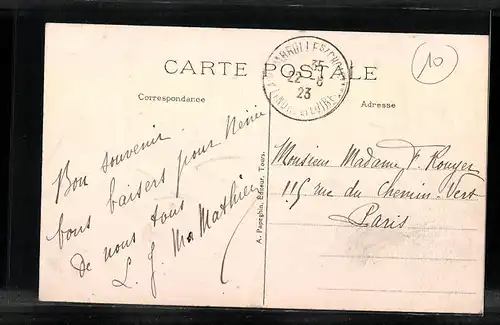 CARTE POSTALE
10
35
22-6
23
INDRE-ET-LOIRE
Correspondance
Adresse
Bon souvenir
bons baisers pour Nénée
de nous tous
L. J. Mathieu
A. Papeghin, Éditeur, Tours.
Monsieur Madame F. Rouyer
115 rue du Chemin-Vert
Paris